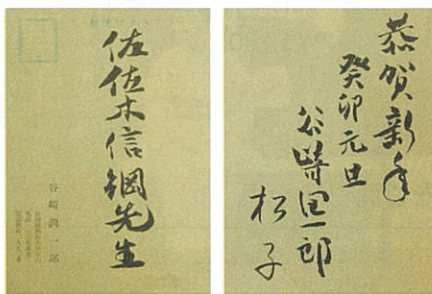 佐佐木信綱先生
谷崎潤一郎
恭賀新年
癸卯元旦
谷崎潤一郎
松子